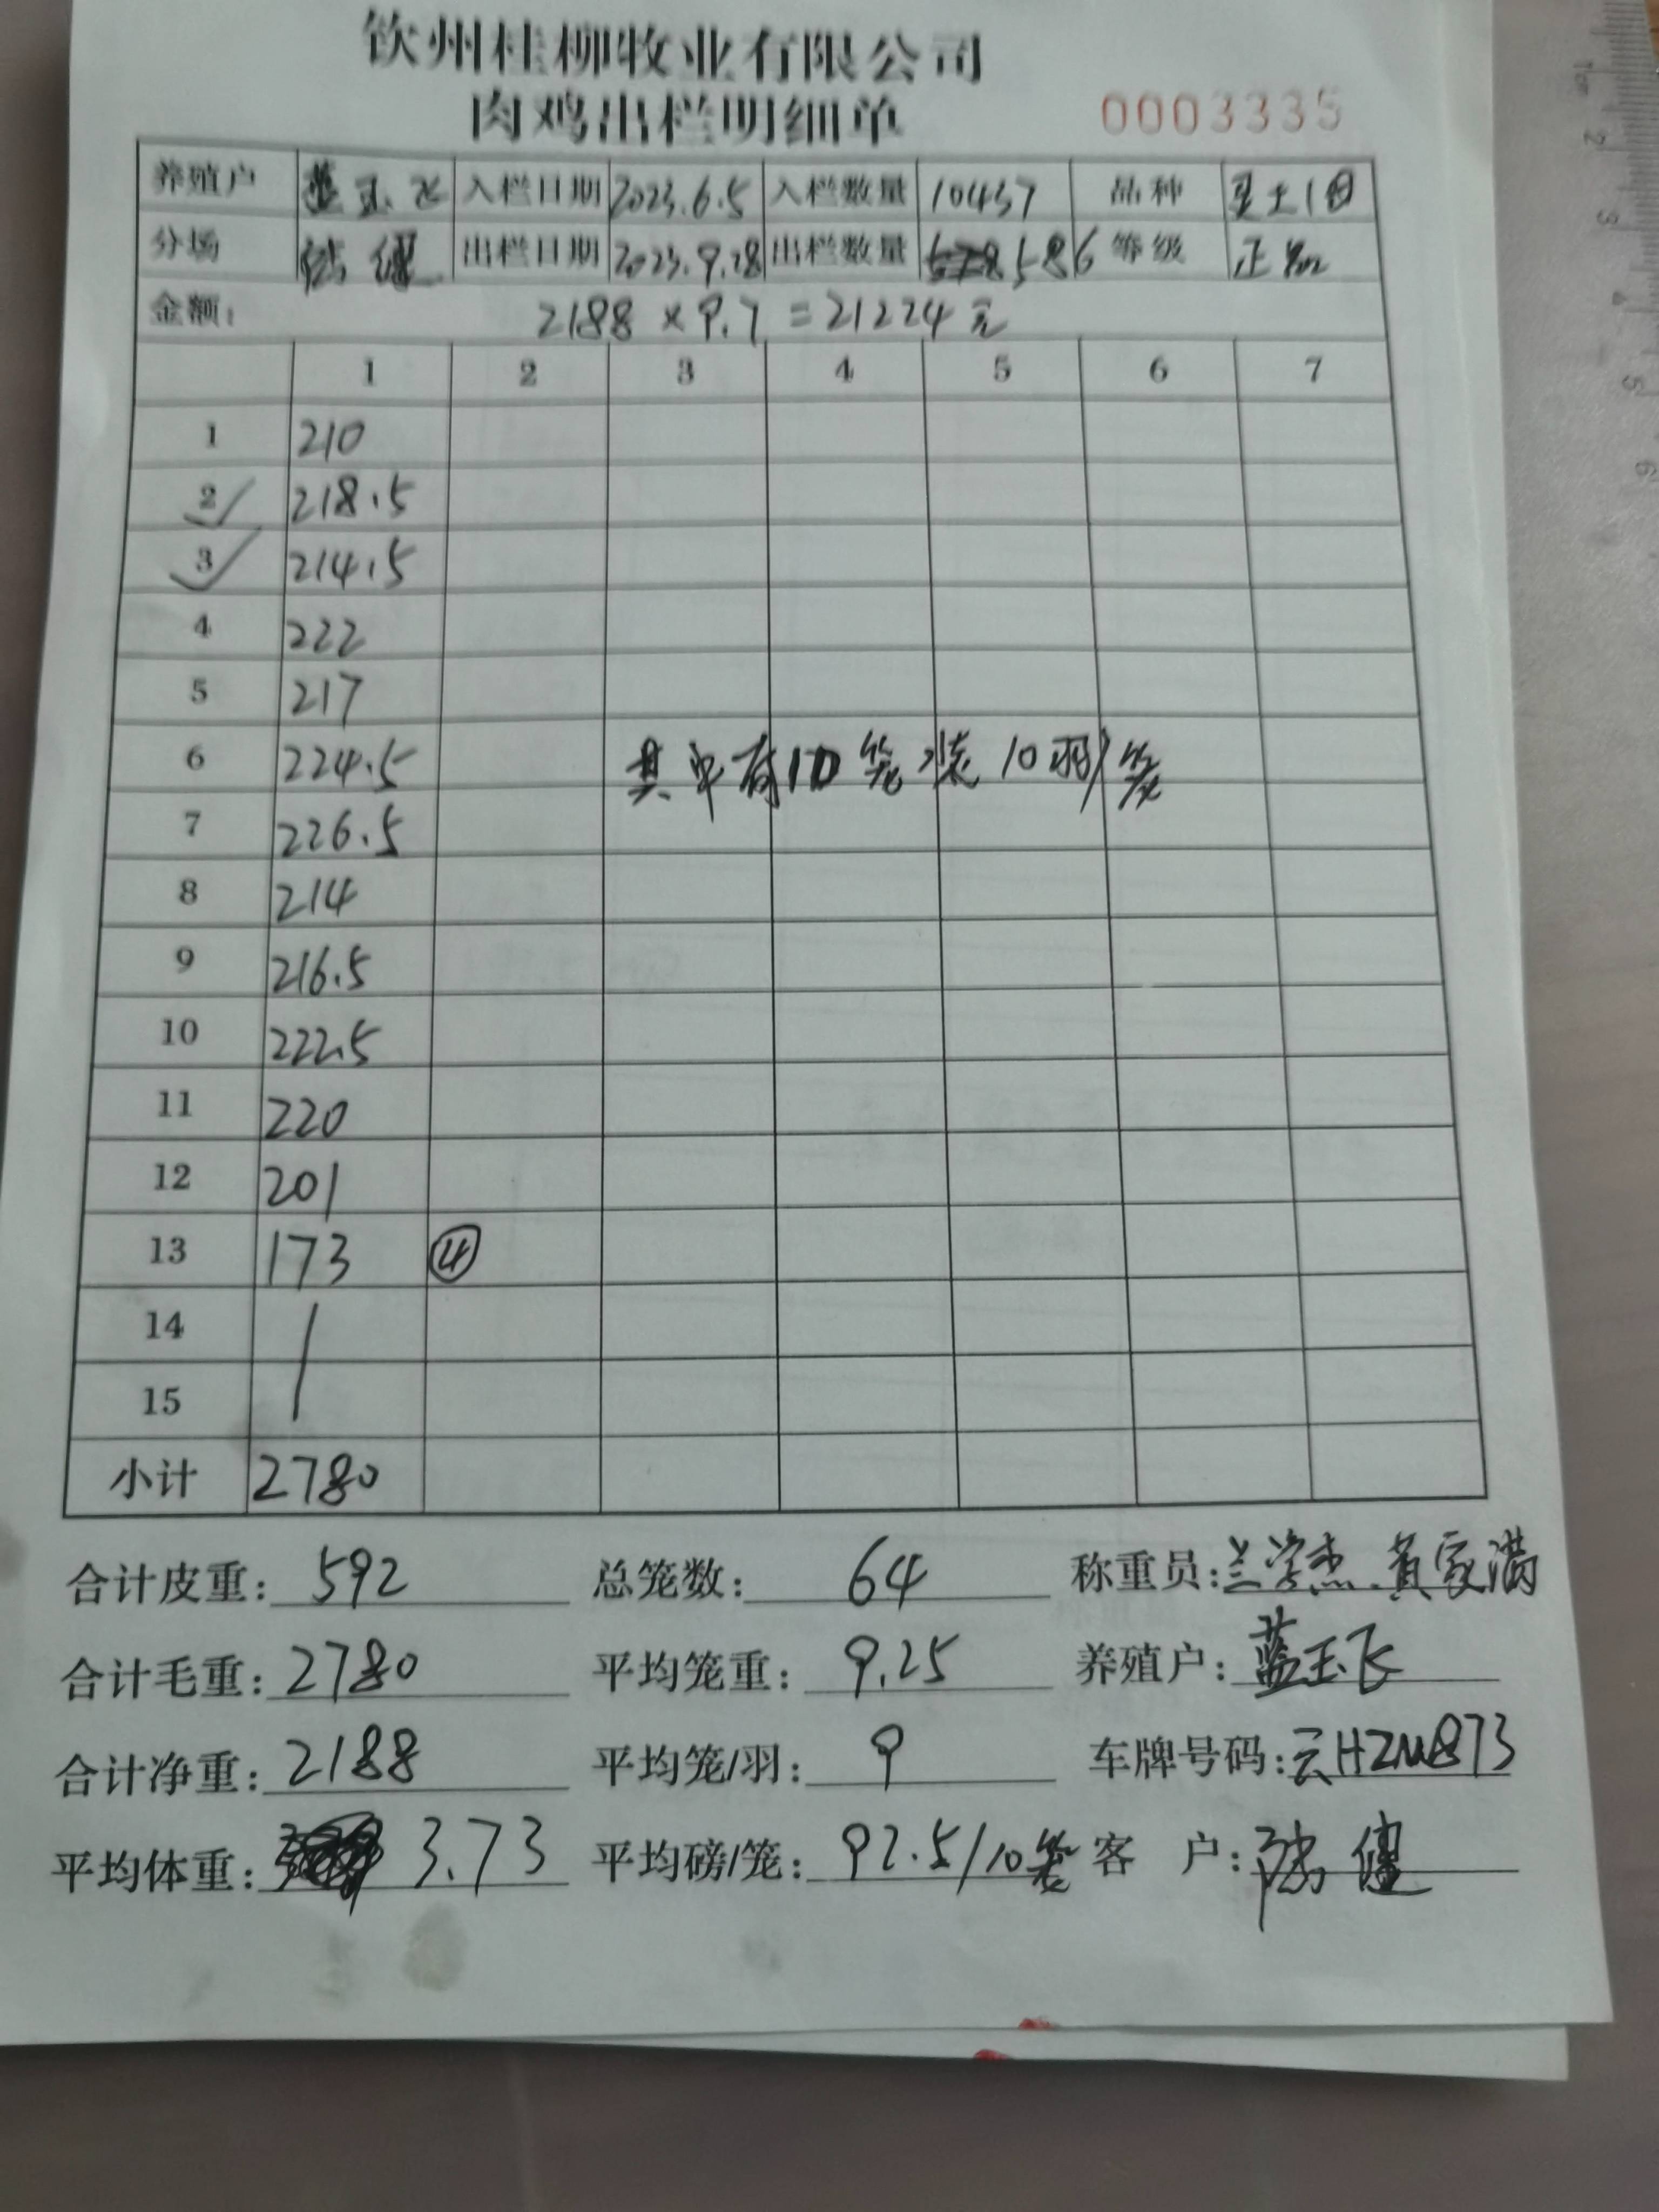 钦州桂柳牧业有限公司
肉鸡出栏明细单 0003335
养殖户 蓝玉飞 入栏日期 2023.6.5 入栏数量 10437 品种
分场 出栏日期 2023.9.28 出栏数量 586 等级 正品
金额: 2188 × 9.7 = 21224元
1 2 3 4 5 6 7
1 210
2 ✓ 218.5
3 ✓ 214.5
4 222
5 217
6 224.5 其中有10笼装10羽/笼
7 226.5
8 214
9 216.5
10 222.5
11 220
12 201
13 173 ④
14
15
小计 2780
合计皮重: 592 总笼数: 64 称重员: 兰学杰.黄家满
合计毛重: 2780 平均笼重: 9.25 养殖户: 蓝玉飞
合计净重: 2188 平均笼/羽: 9 车牌号码: 云HZM873
平均体重: 3.73 平均磅/笼: 92.5/10笼 客 户: